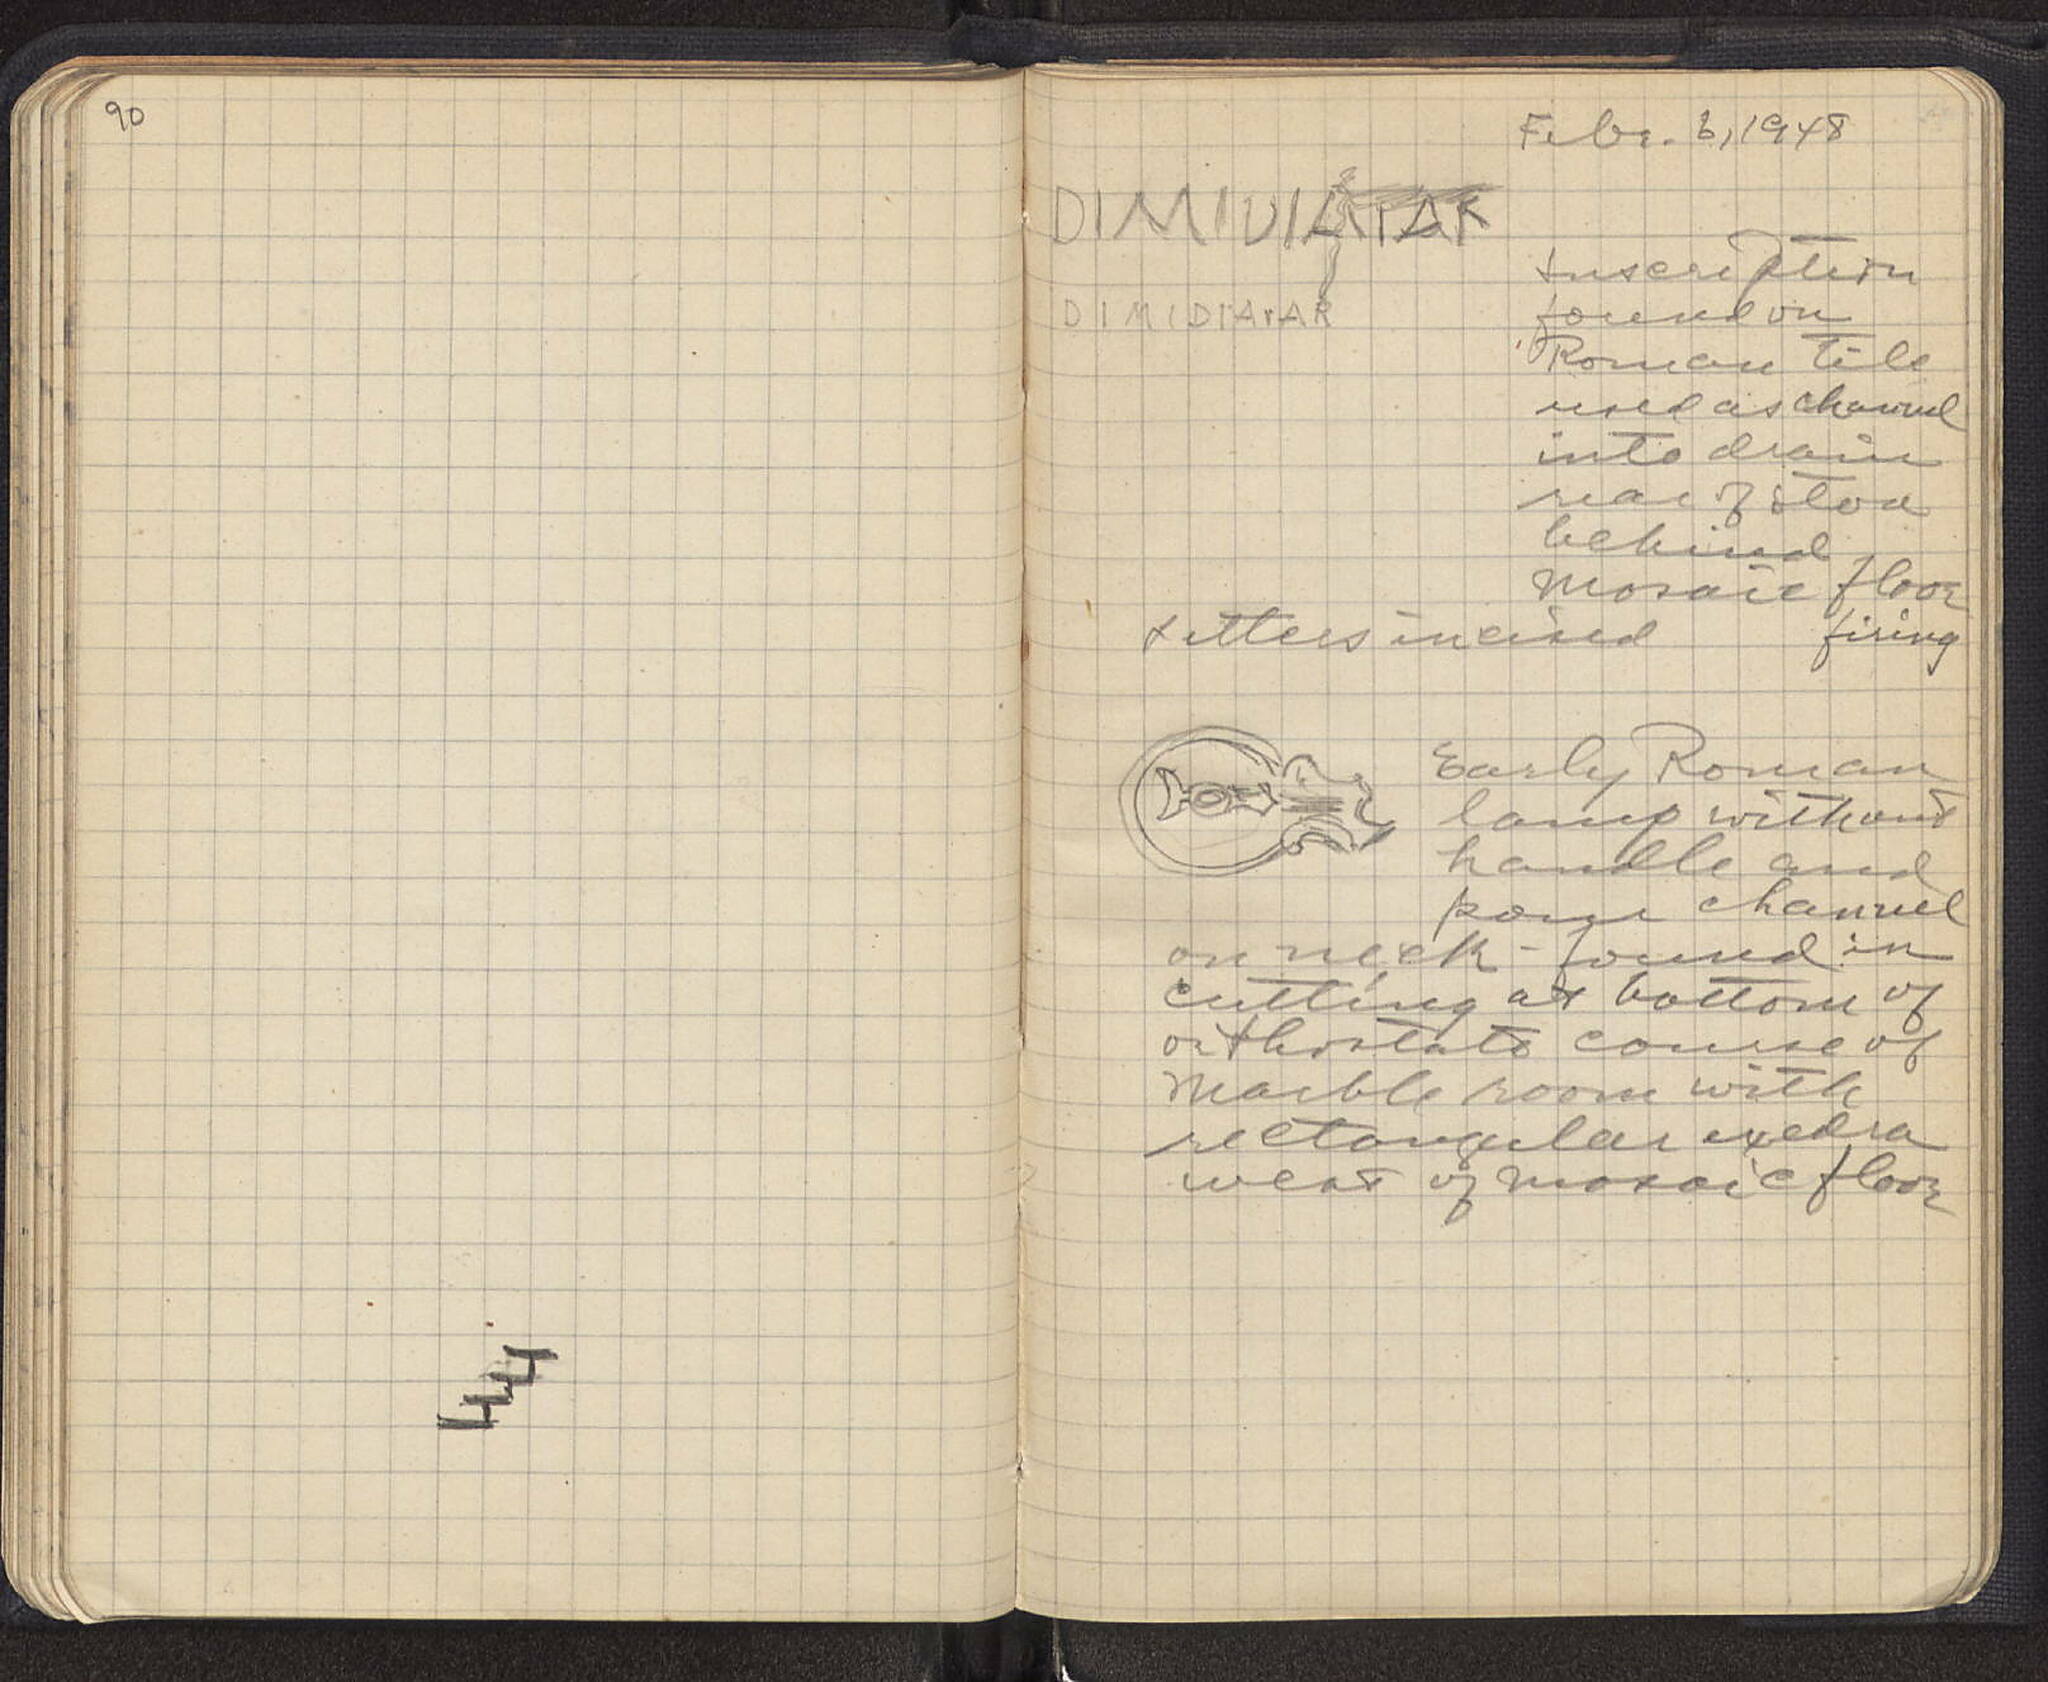 90
Febr. 6, 1948
DIMIDIATAR
DIMIDIATAR
Inscription
found on
Roman tile
used as channel
into drain
rear of stoa
behind
mosaic floor
Letters incised firing
Early Roman
lamp without
handle and
channel
on neck - found in
cutting at bottom of
orthostate course of
marble room with
rectangular exedra
west of mosaic floor